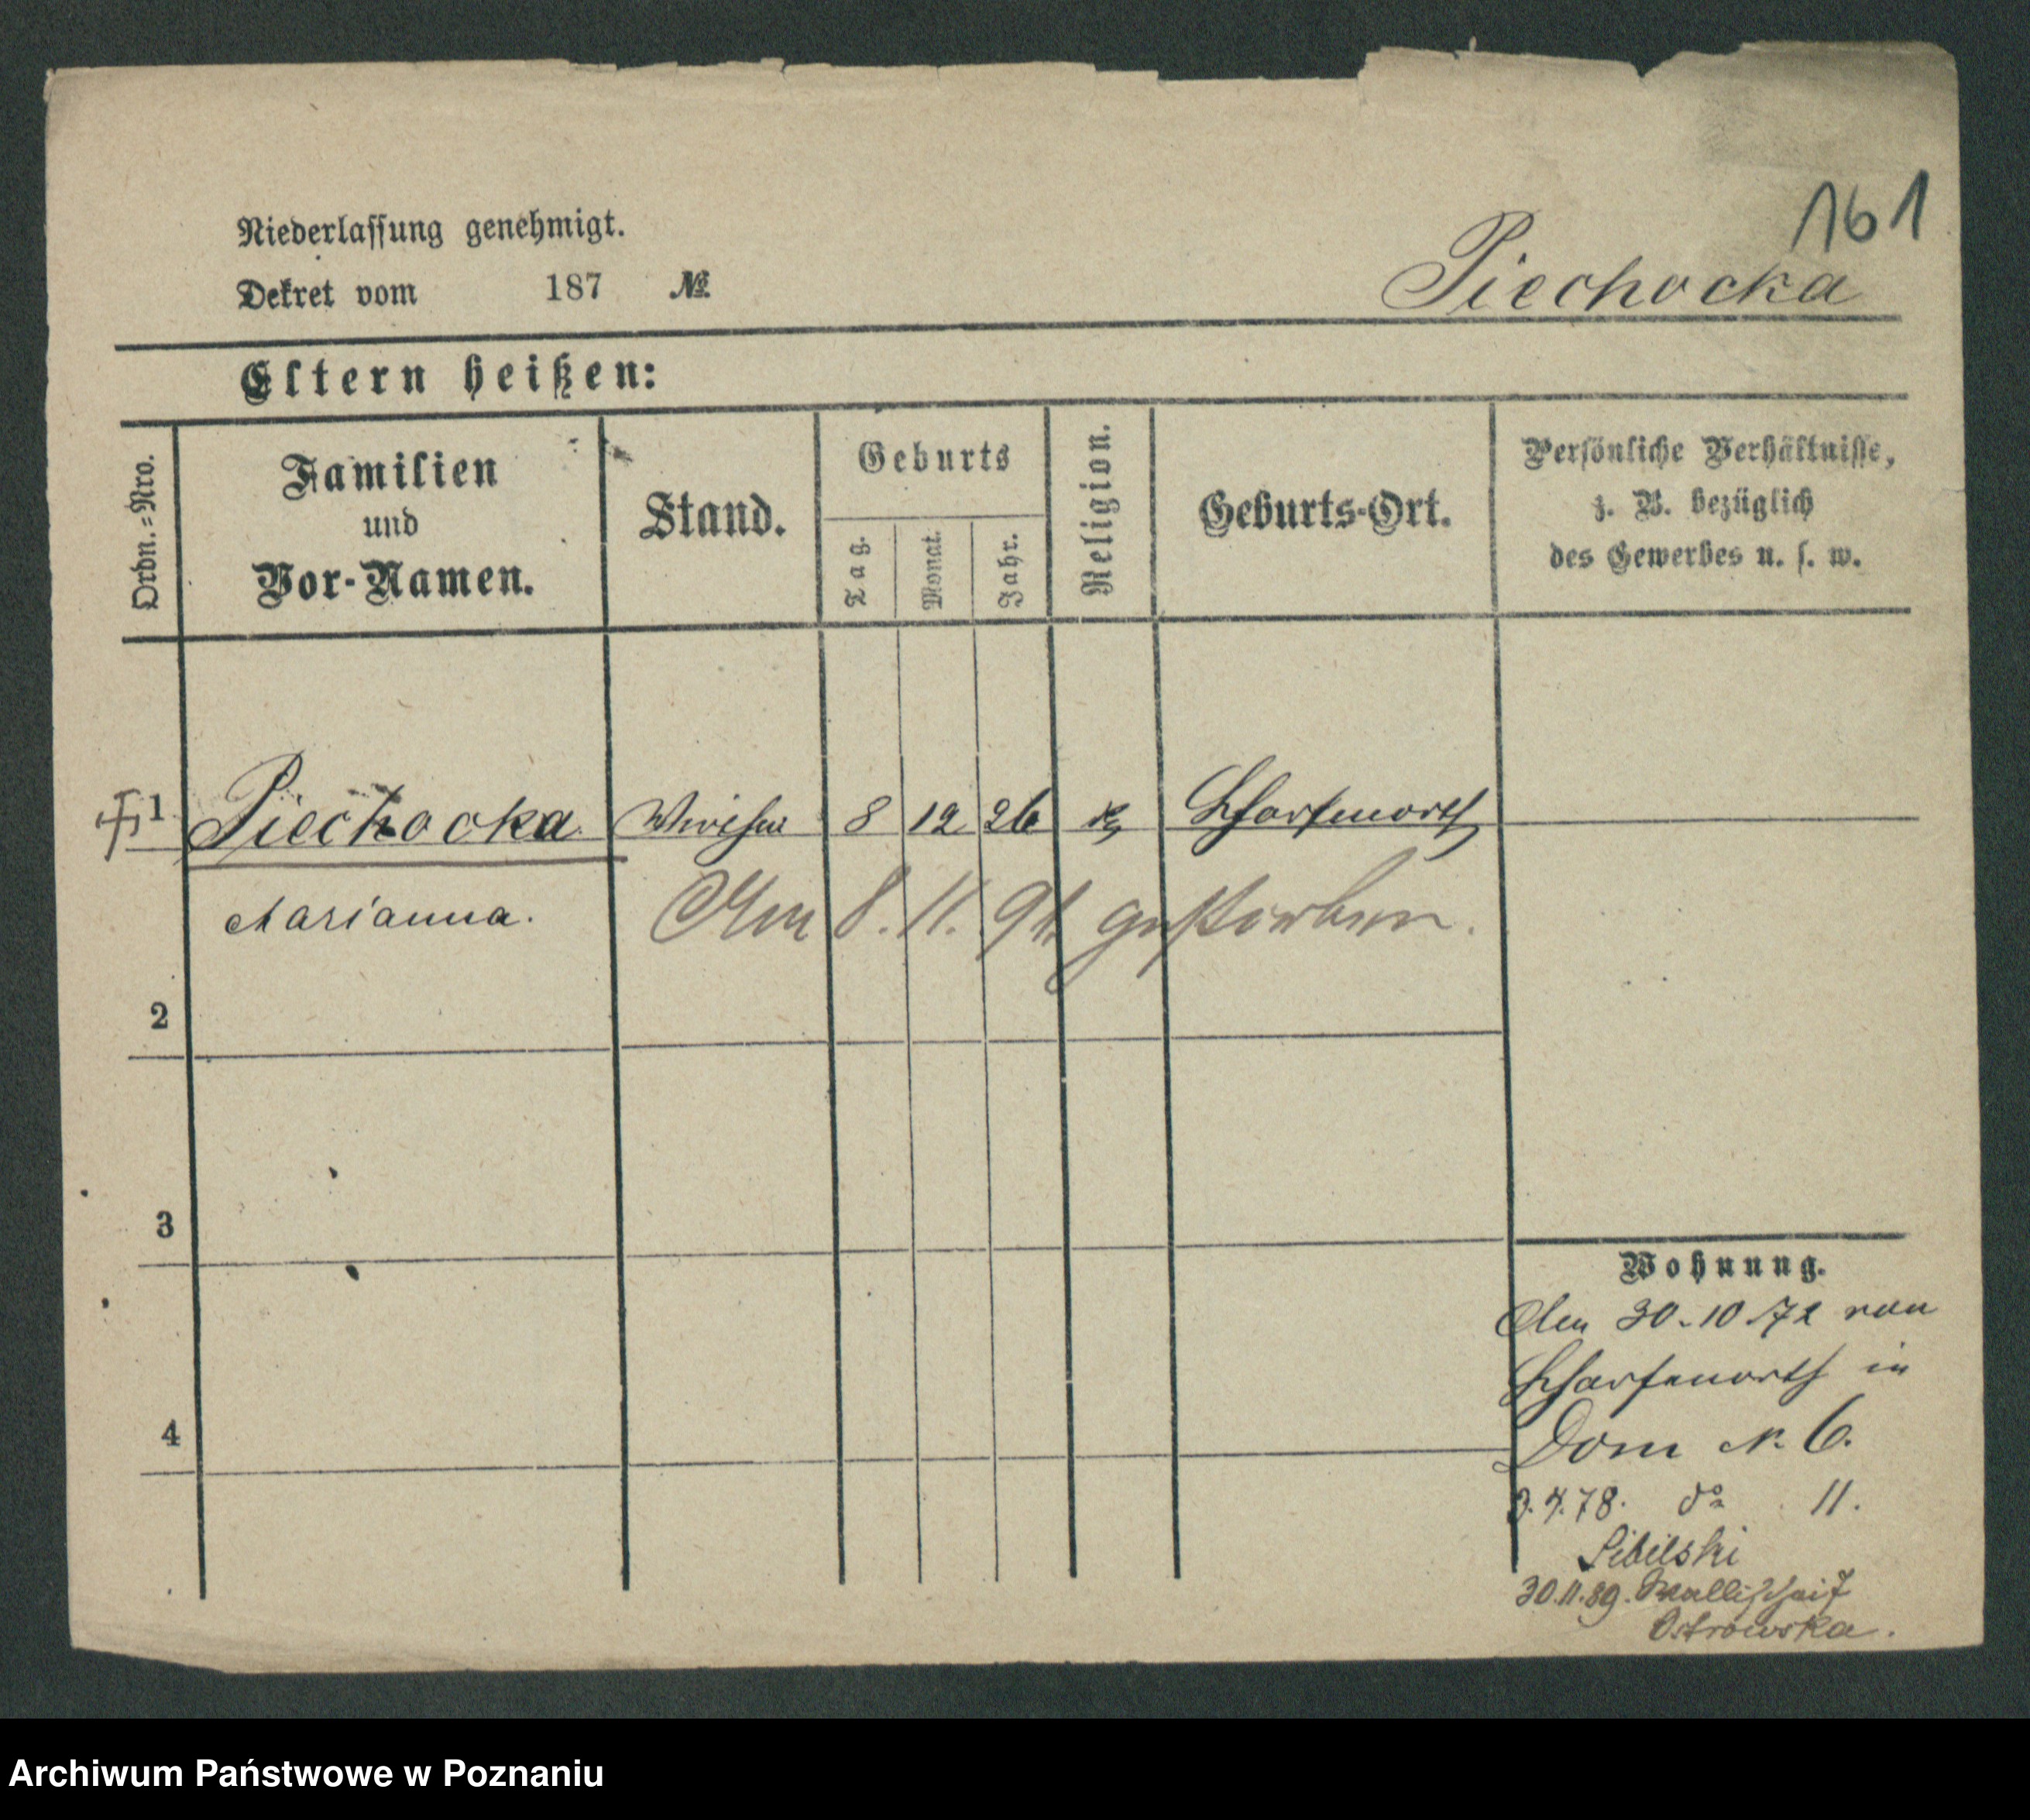 161
Niederlassung genehmigt.
Dekret vom 187 №
Piechocka
Eltern heißen:
Ordn.=Nro.
Familien
und
Vor-Namen.
Stand.
Geburts
Tag.
Monat.
Jahr.
Religion.
Geburts-Ort.
Persönliche Verhältnisse,
z. B. bezüglich
des Gewerbes u. s. w.
1 Piechocka 8 12 26 k Scharfenorth
Marianna.
Am 8. 11. 91 gestorben.
2
3
4
Wohnung.
Am 30.10.72 von
Scharfenorth in
Dom N. 6.
3.4.78. do 11.
Sibilski
30.11.89. Wallischei 7
Ostrowska.
Archiwum Państwowe w Poznaniu